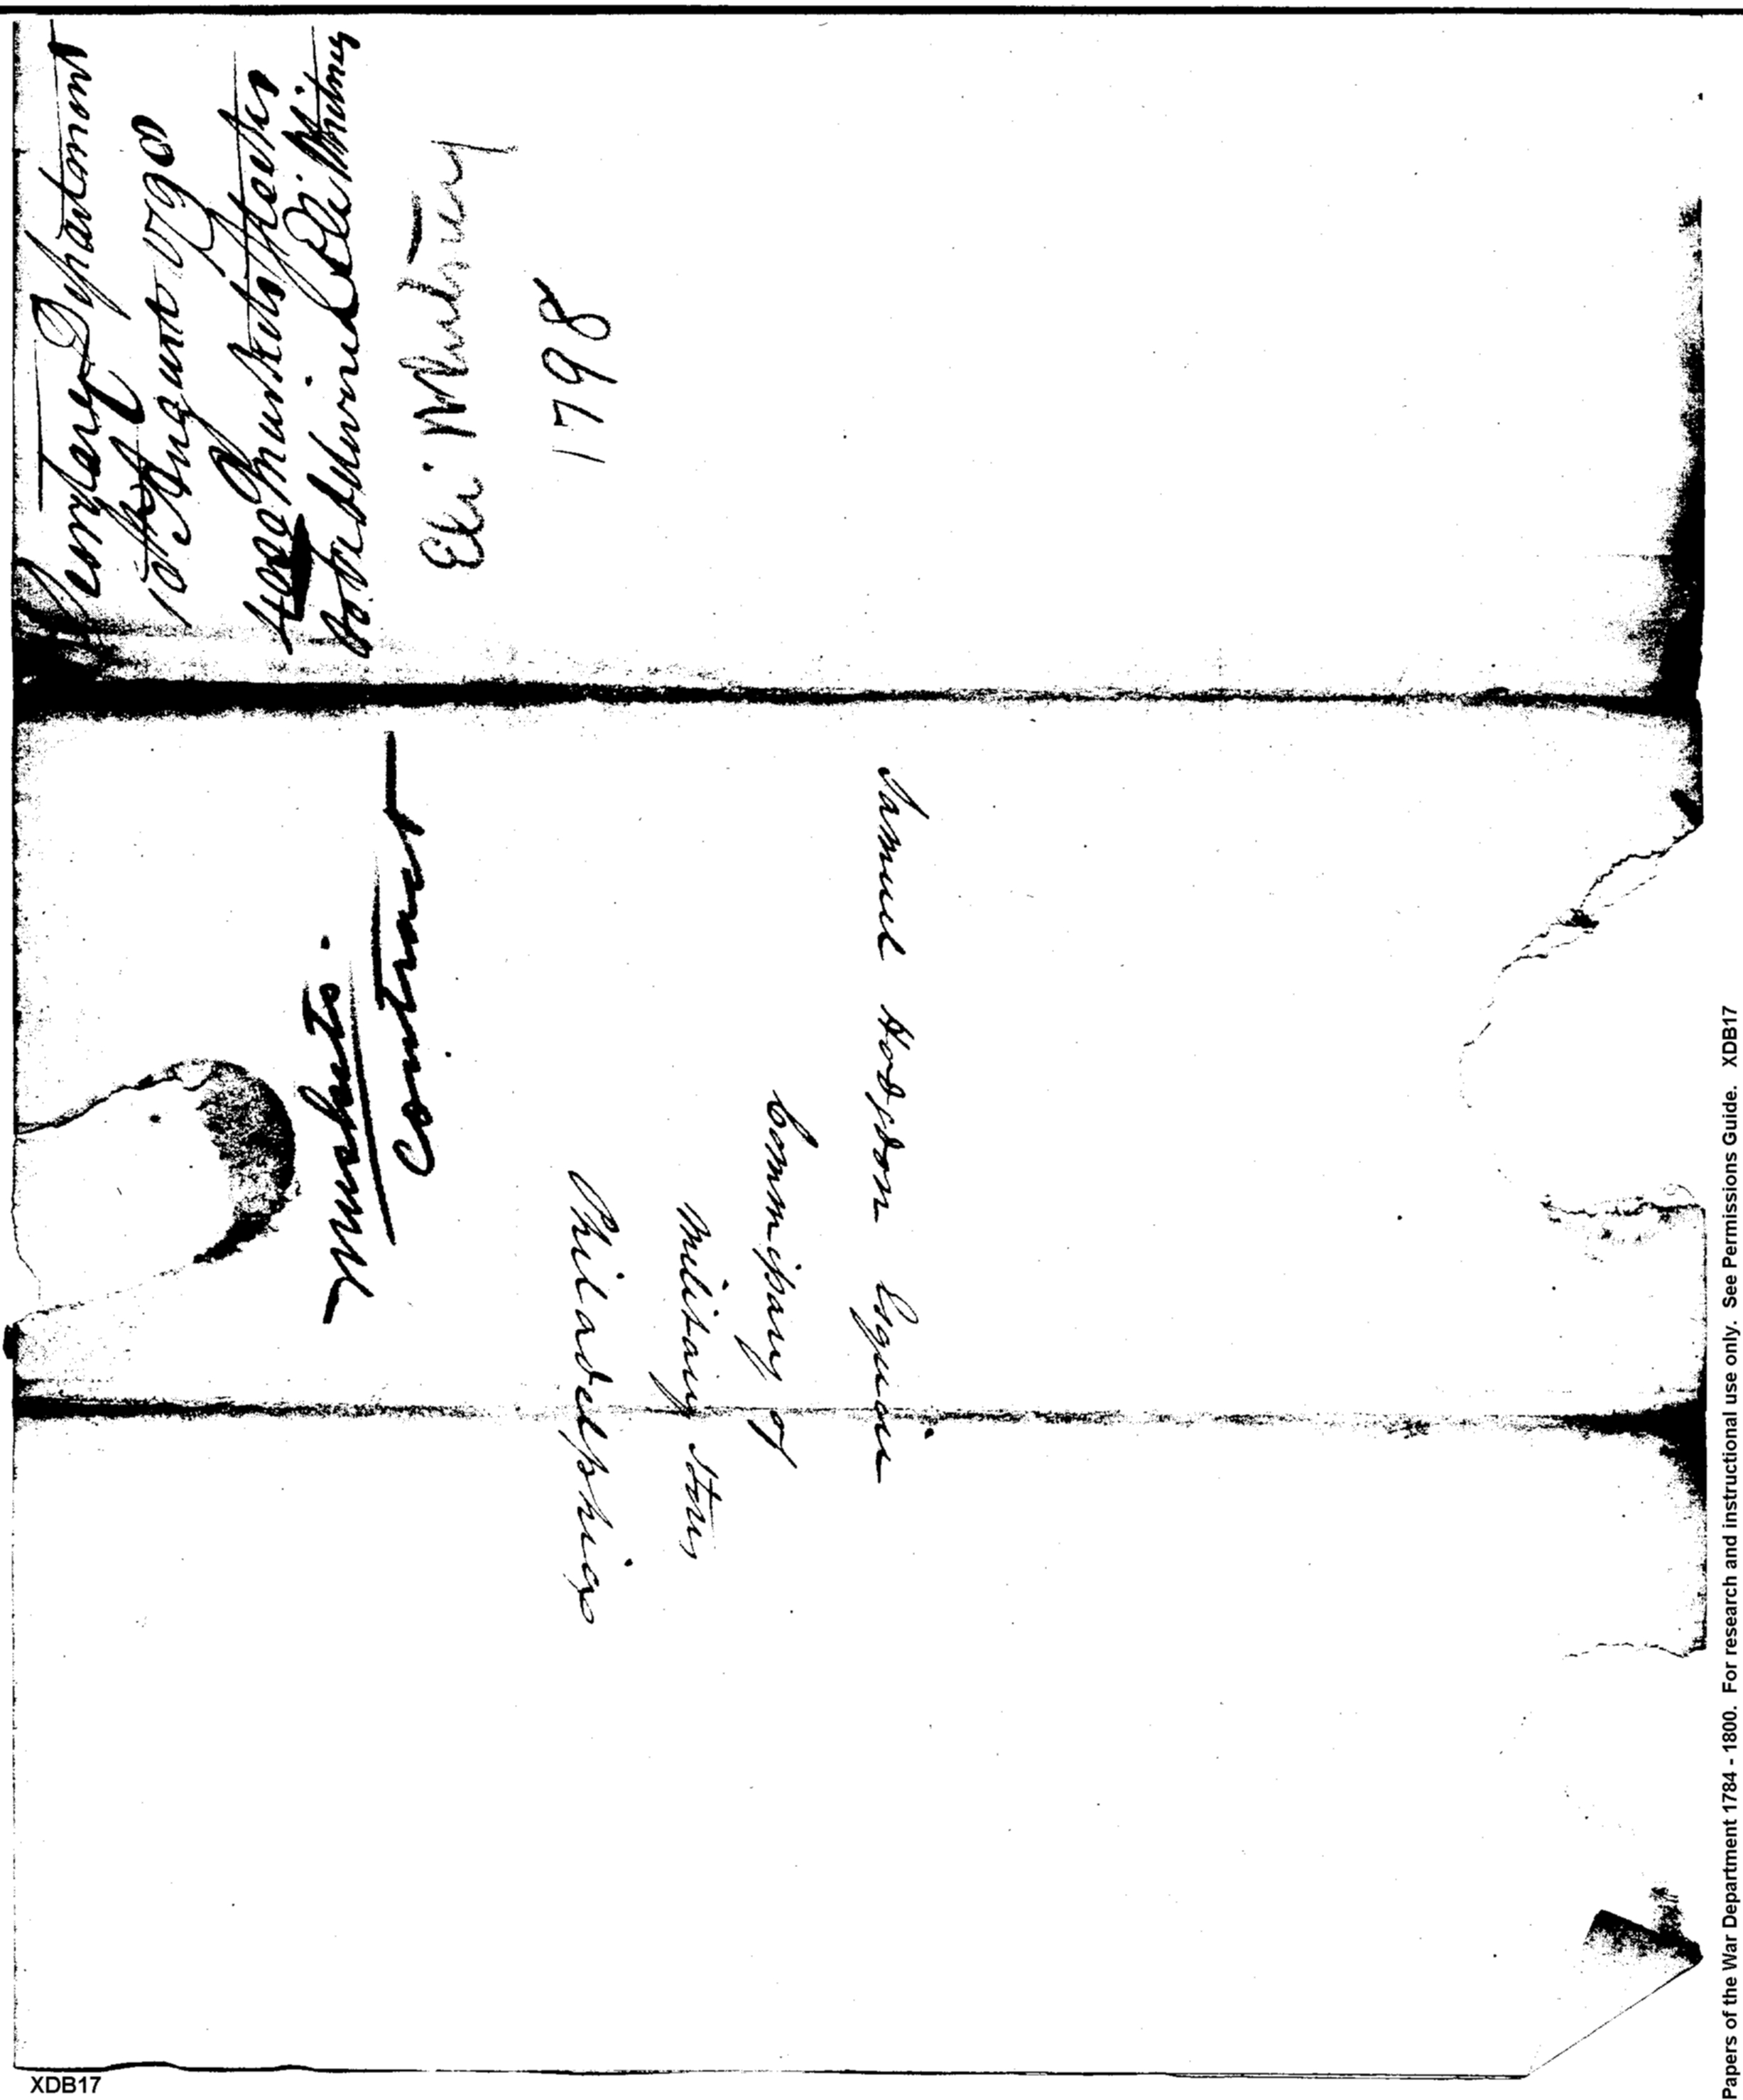 Department
10th August 1798
4000 Muskets
to be delivered Eli Whitney
Eli Whitney
1798
Muskets.
Contract
Samuel Hodgdon Esquire
Commissary of
Military Stores
Philadelphia
XDB17
Papers of the War Department 1784 - 1800. For research and instructional use only. See Permissions Guide. XDB17